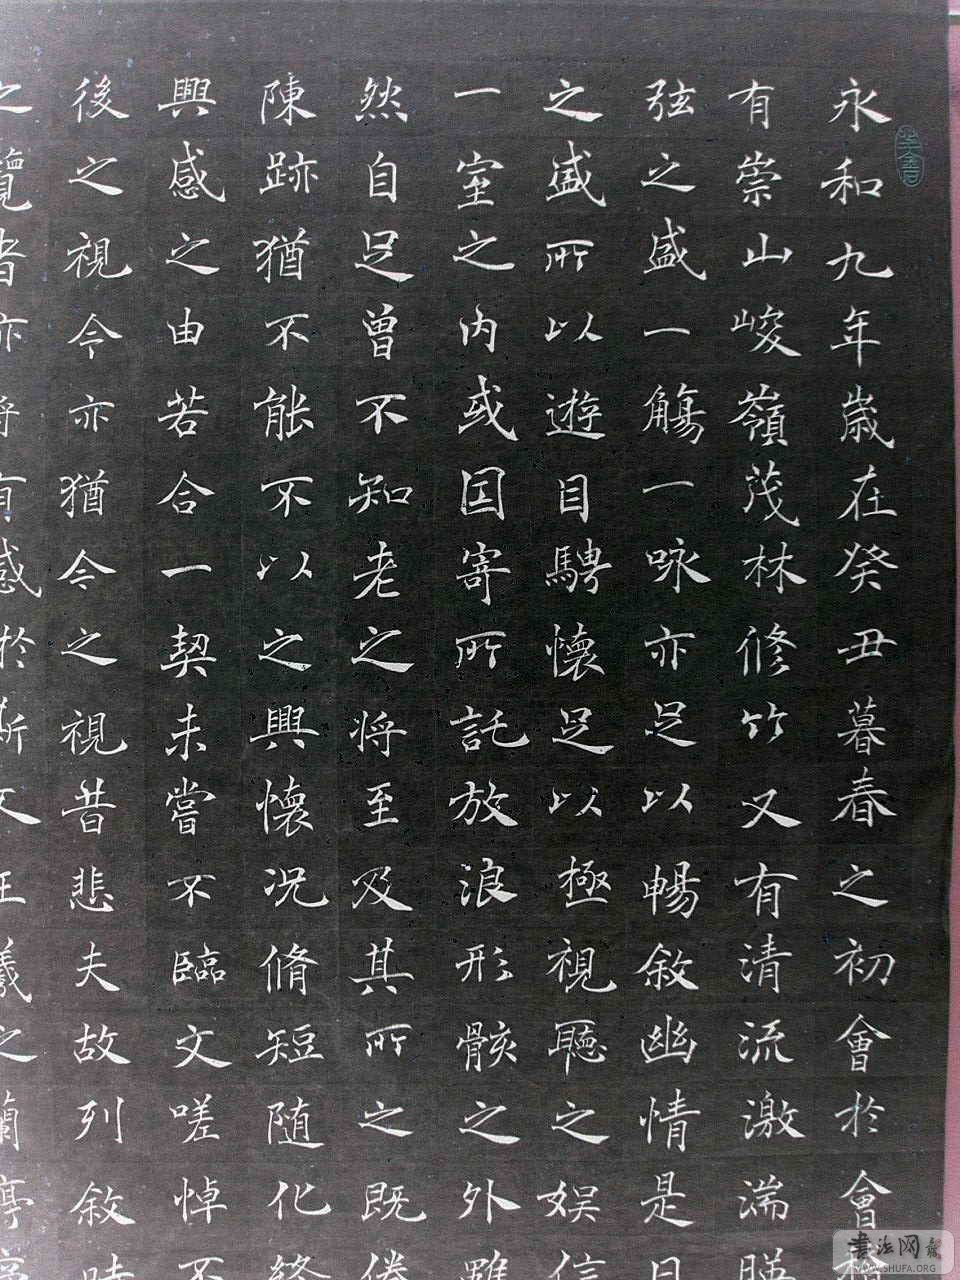 永和九年歲在癸丑暮春之初會於會
有崇山峻嶺茂林修竹又有清流激湍
弦之盛一觴一咏亦足以暢敘幽情是日
之盛所以遊目騁懷足以極視聽之娛信
一室之內或因寄所託放浪形骸之外雖
然自足曾不知老之將至及其所之既倦
陳跡猶不能不以之興懷況脩短随化終
興感之由若合一契未嘗不臨文嗟悼不
後之視今亦猶今之視昔悲夫故列敘時
之覽者亦將有感於斯文王羲之蘭亭
書法网
WWW.SHUFA.ORG